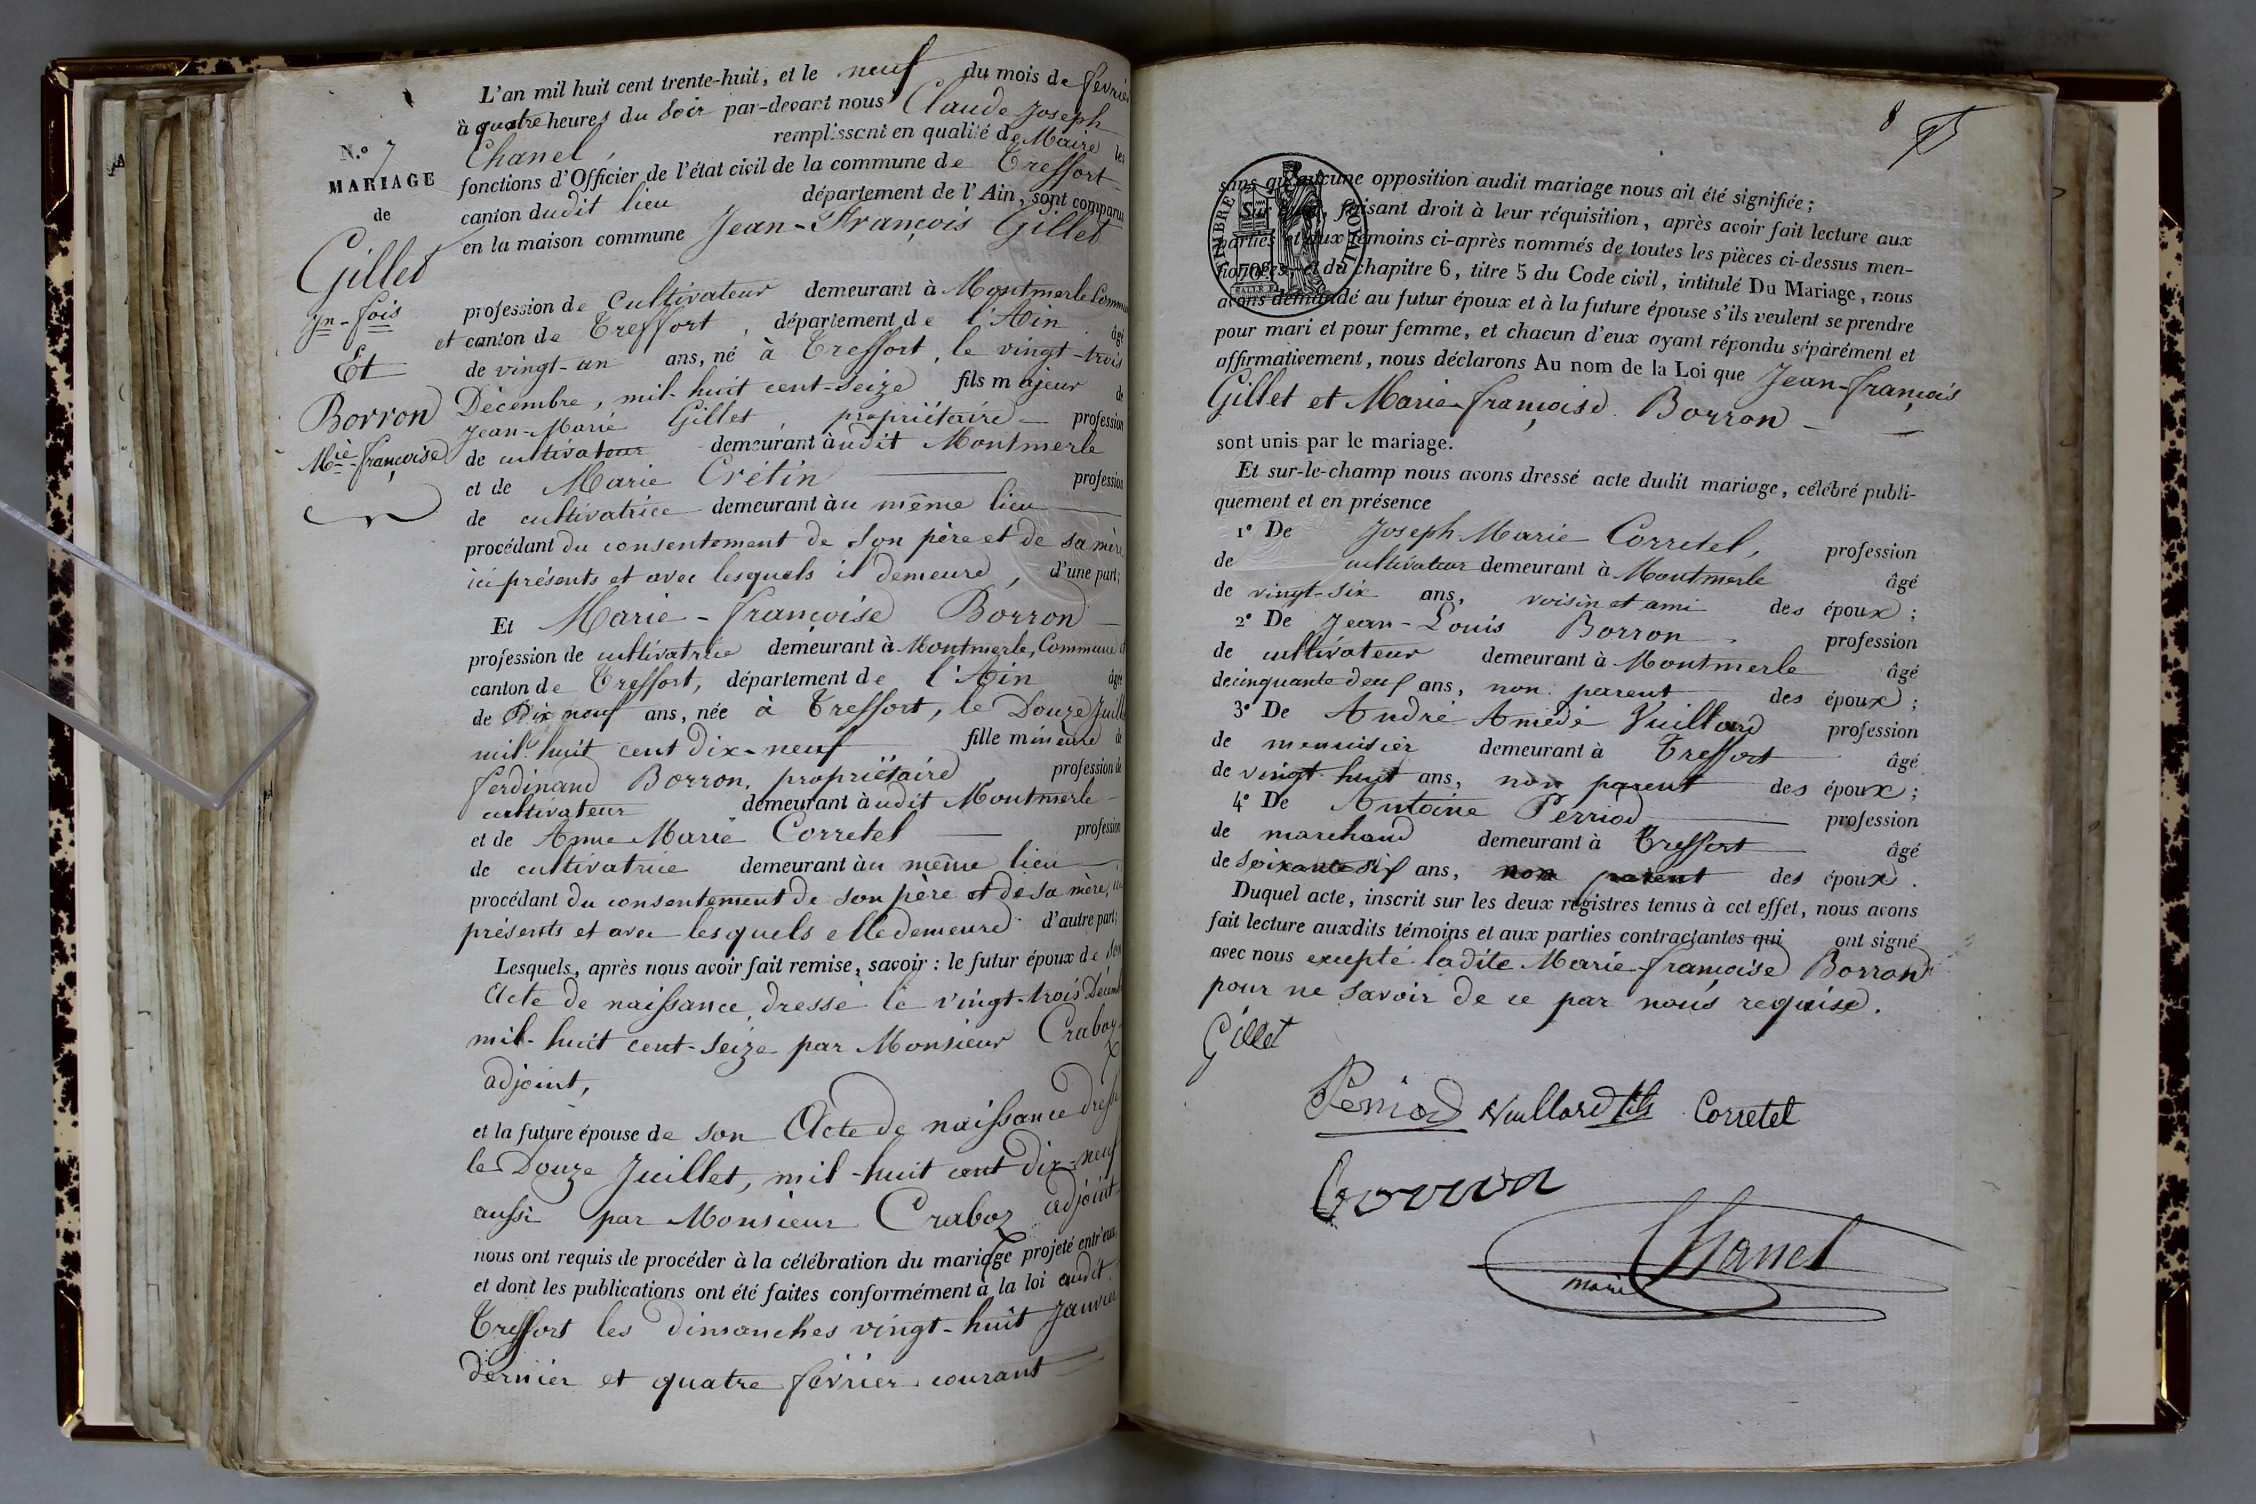 L'an mil huit cent trente-huit, et le neuf du mois de février
à quatre heures du soir par-devant nous Claude Joseph
Chanel, remplissant en qualité de Maire les
fonctions d'Officier de l'état civil de la commune de Treffort
canton dudit lieu département de l'Ain, sont comparus
en la maison commune Jean-François Gillet
N.º 7
MARIAGE
de
Gillet
Jn-fois
Et
Borron
Mie françoise
profession de cultivateur demeurant à Montmerle Commune
et canton de Treffort, département de l'Ain âgé
de vingt-un ans, né à Treffort, le vingt-trois
Décembre, mil-huit cent-seize fils majeur de
Jean-Marie Gillet, propriétaire profession
de cultivateur demeurant audit Montmerle
et de Marie Crétin profession
de cultivatrice demeurant au même lieu
procédant du consentement de son père et de sa mère
ici présents et avec lesquels il demeure, d'une part;
Et Marie-françoise Borron
profession de cultivatrice demeurant à Montmerle, Commune et
canton de Treffort, département de l'Ain âgée
de Dix neuf ans, née à Treffort, le Douze Juillet
mil huit cent dix-neuf fille mineure de
ferdinand Borron, propriétaire profession de
cultivateur demeurant audit Montmerle
et de Anne Marie Corretel profession
de cultivatrice demeurant au même lieu
procédant du consentement de son père et de sa mère, ici
présents et avec lesquels elle demeure d'autre part;
Lesquels, après nous avoir fait remise, savoir : le futur époux de son
Acte de naissance dressé le vingt-trois Décembre
mil-huit cent-seize par Monsieur Craboz
adjoint,
et la future épouse de son Acte de naissance dressé
le Douze Juillet, mil-huit cent dix-neuf
aussi par Monsieur Craboz adjoint
nous ont requis de procéder à la célébration du mariage projeté entr'eux,
et dont les publications ont été faites conformément à la loi audit
Treffort les dimanches vingt-huit Janvier
dernier et quatre février courant
8
TIMBRE ROYAL
sans qu'aucune opposition audit mariage nous ait été signifiée;
Sur quoi, faisant droit à leur réquisition, après avoir fait lecture aux
parties et aux témoins ci-après nommés de toutes les pièces ci-dessus men-
tionnées, et du chapitre 6, titre 5 du Code civil, intitulé Du Mariage, nous
avons demandé au futur époux et à la future épouse s'ils veulent se prendre
pour mari et pour femme, et chacun d'eux ayant répondu séparément et
affirmativement, nous déclarons Au nom de la Loi que Jean-françois
Gillet et Marie-françoise Borron
sont unis par le mariage.
Et sur-le-champ nous avons dressé acte dudit mariage, célébré publi-
quement et en présence
1º De Joseph Marie Corretel, profession
de cultivateur demeurant à Montmerle âgé
de vingt-six ans, voisin et ami des époux;
2º De Jean-Louis Borron profession
de cultivateur demeurant à Montmerle âgé
de cinquante deux ans, non parent des époux;
3º De André Amédé Vuillard profession
de menuisier demeurant à Treffort âgé
de vingt huit ans, non parent des époux;
4º De Antoine Perriod profession
de marchand demeurant à Treffort âgé
de soixante six ans, non parent des époux.
Duquel acte, inscrit sur les deux registres tenus à cet effet, nous avons
fait lecture auxdits témoins et aux parties contractantes qui ont signé
avec nous excepté ladite Marie françoise Borron
pour ne savoir de ce par nous requise.
Gillet
Perriod Vuillard fils Corretel
Borron
Chanel
maire